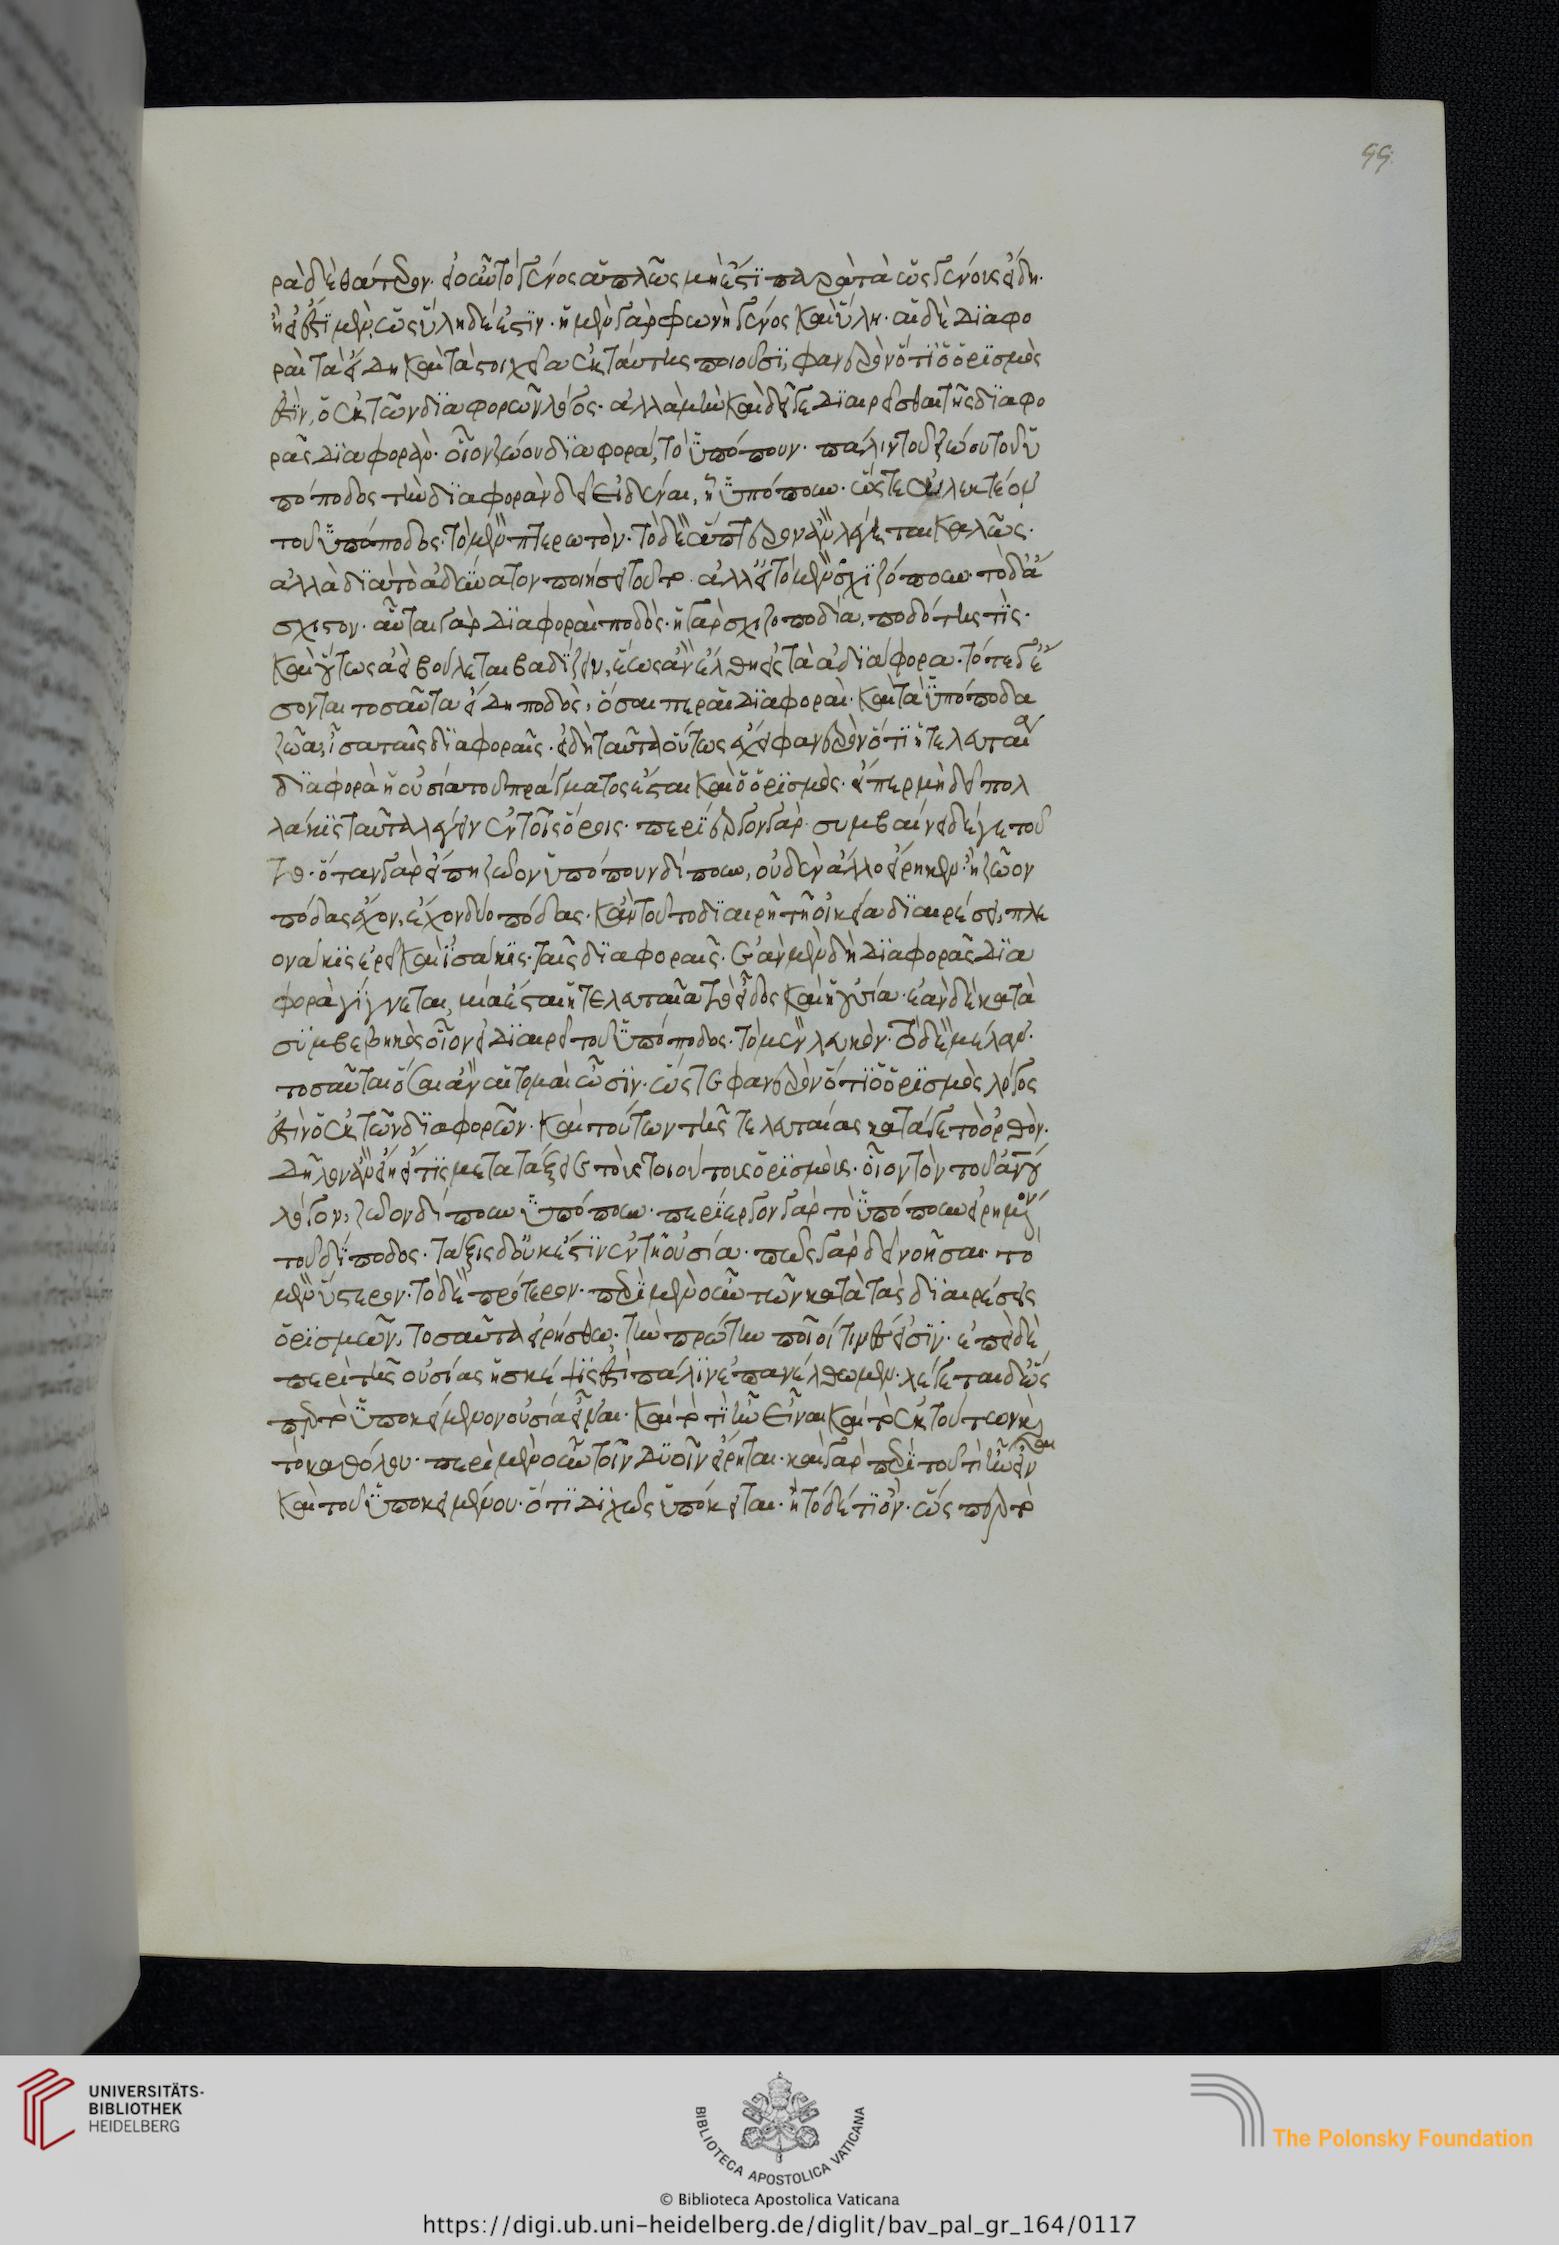 ρὰ δὲ θάτερον· εἰ οὖν τὸ γένος ἁπλῶς μὴ ἔστι παρὰ τὰ ὡς γένους εἴδη·
ἢ εἰ ἔστι μὲν, ὡς ὕλη δέ ἐστιν· ἡ μὲν γὰρ φωνὴ γένος καὶ ὕλη· αἱ δὲ διαφο
ραὶ τὰ εἴδη καὶ τὰ στοιχεῖα ἐκ ταύτης ποιοῦσι, φανερὸν ὅτι ὁ ὁρισμὸς
ἐστὶν, ὁ ἐκ τῶν διαφορῶν λόγος· ἀλλὰ μὴν καὶ δεῖ γε διαιρεῖσθαι τῆς διαφο
ρᾶς διαφοράν· οἷον ζώου διαφορά, τὸ ὑπόπουν· πάλιν τοῦ ζώου τοῦ ὑ
πόποδος τὴν διαφορὰν δεῖ εἰδέναι, ἣ ὑπόπουν· ὥστε οὐ λεκτέον
τοῦ ὑπόποδος· τὸ μὲν πτερωτὸν· τὸ δὲ ἄπτερον ἐὰν λέγηται καλῶς·
ἀλλὰ διὰ τὸ ἀδυνατον ποιήσει τοῦτο· ἀλλ' εἰ τὸ μὲν σχιζόπουν· τὸ δ' ἄ
σχιστον· αὗται γὰρ διαφοραὶ ποδὸς· ἡ γὰρ σχιζοποδία, ποδότης τὶς·
καὶ οὕτως ἀεὶ βούλεται βαδίζειν, ἕως ἂν ἔλθη εἰς τὰ ἀδιάφορα· τότε δ' ἔ
σονται τοσαῦτα εἴδη ποδὸς, ὅσαι περ αἱ διαφοραὶ· καὶ τὰ ὑπόποδα
ζῶα, ἴσα ταῖς διαφοραῖς· εἰ δὴ ταῦτα οὕτως ἔχει φανερὸν ὅτι ἡ τελευταία
διαφορὰ ἡ οὐσία τοῦ πράγματος ἔσται καὶ ὁ ὁρισμὸς· εἴπερ μὴ δεῖ πολ
λάκις ταῦτα λέγειν ἐν τοῖς ὅροις· περίεργον γάρ· συμβαίνει δέ γε τοῦ
το· ὅταν γὰρ εἴπη ζῶον ὑπόπουν δίπουν, οὐδὲν ἄλλο εἴρηκεν· ἢ ζῶον
πόδας ἔχον, ἔχον δύο πόδας· κἂν τοῦτο διαιρῆ τῆ οἰκεία διαιρέσει, πλε
ονάκις ἐρεῖ καὶ ἰσάκις· ταῖς διαφοραῖς· ἐὰν μὲν δὴ διαφορᾶς δια
φορὰ γίγνεται, μία ἔσται ἡ τελευταῖα τὸ εἶδος καὶ ἡ οὐσία· ἐὰν δὲ κατὰ
συμβεβηκὸς οἷον εἰ διαιρεῖ τοῦ ὑπόποδος· τὸ μὲν λευκὸν· τὸ δὲ μέλαν·
τοσαῦται ὅσαι ἂν αἱ τομαὶ ὦσιν· ὥστε φανερὸν ὅτι ὁ ὁρισμὸς λόγος
ἐστὶν ὁ ἐκ τῶν διαφορῶν· καὶ τούτων τῆς τελευταίας κατά γε τὸ ὀρθὸν·
δῆλον ἂν εἴη εἴ τις μετατάξειε τοὺς τοιούτους ὁρισμοὺς· οἷον τὸν τοῦ ἀνου
λέγον, ζῶον δίπουν ὑπόπουν· περίεργον γὰρ τὸ ὑπόπουν εἰρημένου
τοῦ δίποδος· τάξις δ' οὐκ ἔστιν ἐν τῆ οὐσία· πῶς γὰρ δεῖ νοῆσαι· τὸ
μὲν ὕστερον· τὸ δὲ πρότερον· περὶ μὲν οὖν τῶν κατὰ τὰς διαιρέσεις
ὁρισμῶν, τοσαῦτα εἰρήσθω· τὴν πρώτην ποῖοί τινές εἰσιν· ἐπεὶ δὲ
περὶ τῆς οὐσίας ἡ σκέψις ἐστὶ πάλιν ἐπανέλθωμεν· λέγεται δ' ὥς
περ τὸ ὑποκείμενον οὐσία εἶναι· καὶ τὸ τί ἦν εἶναι καὶ τὸ ἐκ τούτων καὶ
τὸ καθόλου· περὶ μὲν οὖν τοῖν δυοῖν εἴρηται· καὶ γὰρ περὶ τοῦ τί ἦν εἶναι
καὶ τοῦ ὑποκειμένου· ὅτι διχῶς ὑπόκειται· ἢ τόδέ τι ὂν· ὥς περ τὸ
UNIVERSITÄTS-
BIBLIOTHEK
HEIDELBERG
BIBLIOTECA APOSTOLICA VATICANA
The Polonsky Foundation
© Biblioteca Apostolica Vaticana
https://digi.ub.uni-heidelberg.de/diglit/bav_pal_gr_164/0117